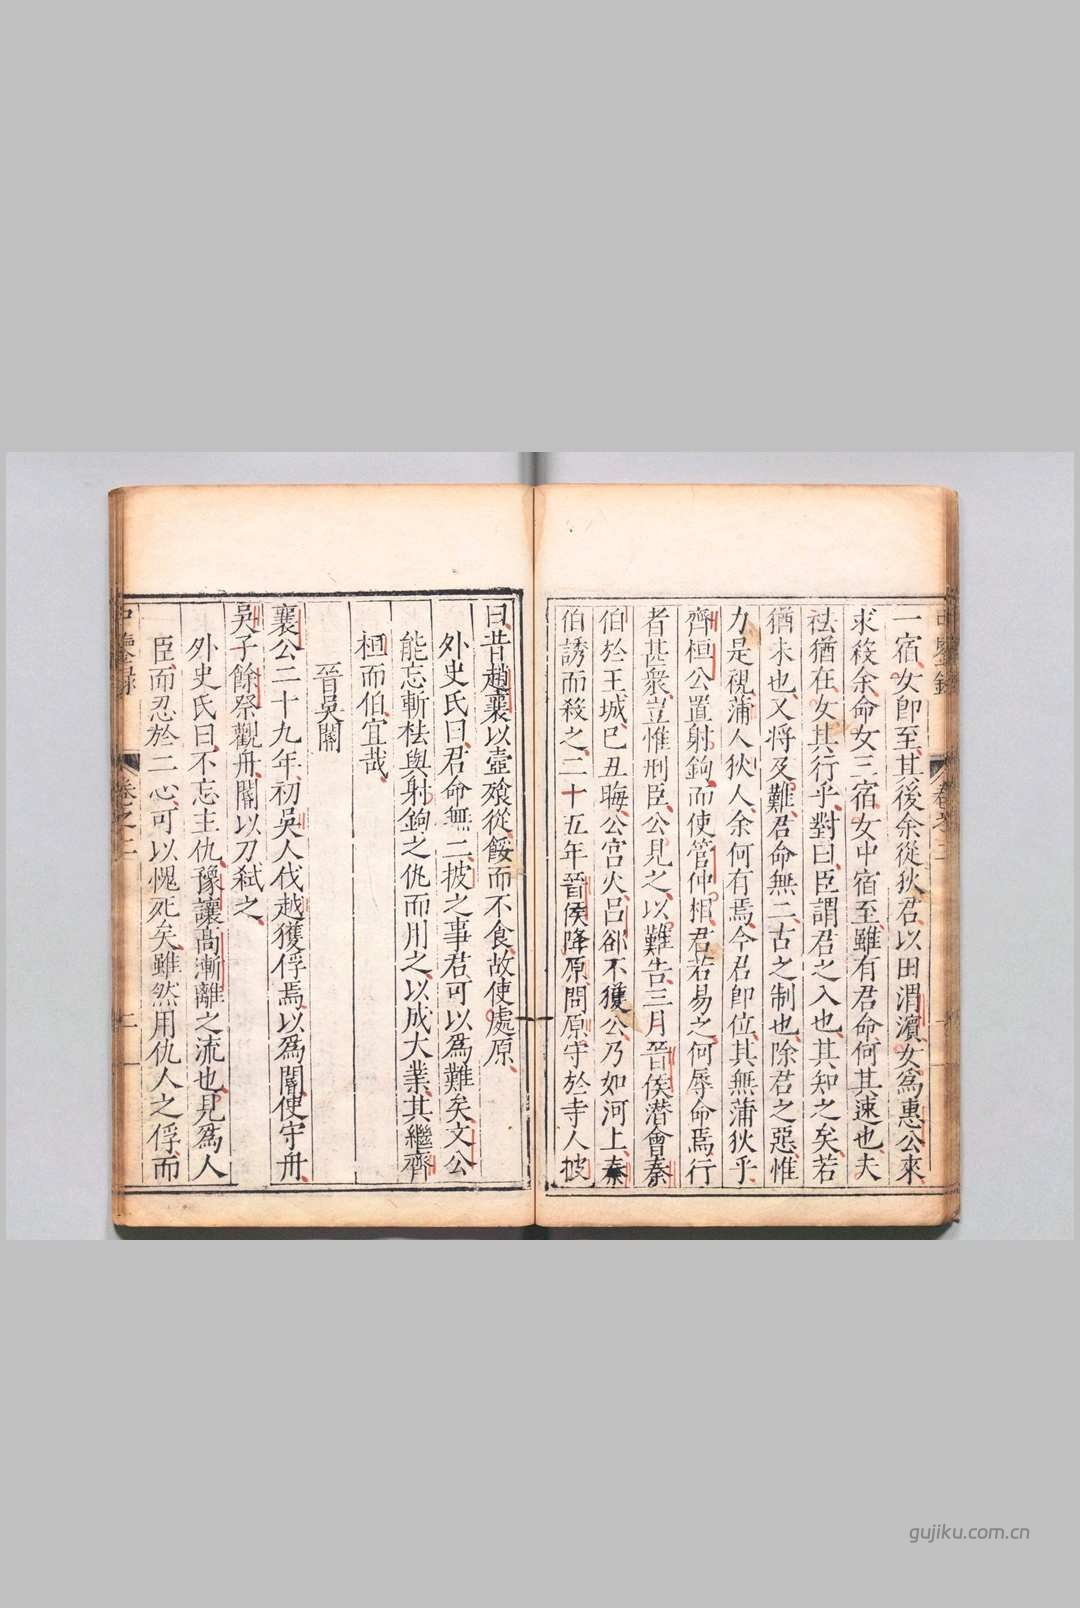 一宿女即至其後余從狄君以田渭濱女爲惠公來
求殺余命女三宿女中宿至雖有君命何其速也夫
袪猶在女其行乎對曰臣謂君之入也其知之矣若
猶未也又將及難君命無二古之制也除君之惡惟
力是視蒲人狄人余何有焉今君即位其無蒲狄乎
齊桓公置射鉤而使管仲相君若易之何辱命焉行
者甚衆豈惟刑臣公見之以難告三月晉侯潜會秦
伯於王城巳丑晦公宮火呂郤不獲公乃如河上秦
伯誘而殺之二十五年晉侯降原問原守於寺人披
曰昔趙襄以壺飱從餒而不食故使處原
外史氏曰君命無二披之事君可以爲難矣文公
能忘斬袪與射鉤之仇而用之以成大業其繼齊
桓而伯宜哉
晉吳閽
襄公二十九年初吳人伐越獲俘焉以爲閽使守舟
吳子餘祭觀舟閽以刀弒之
外史氏曰不忘主仇豫讓高漸離之流也見爲人
臣而忍於二心可以愧死矣雖然用仇人之俘而
中鑒錄 卷之二 二
gujiku.com.cn